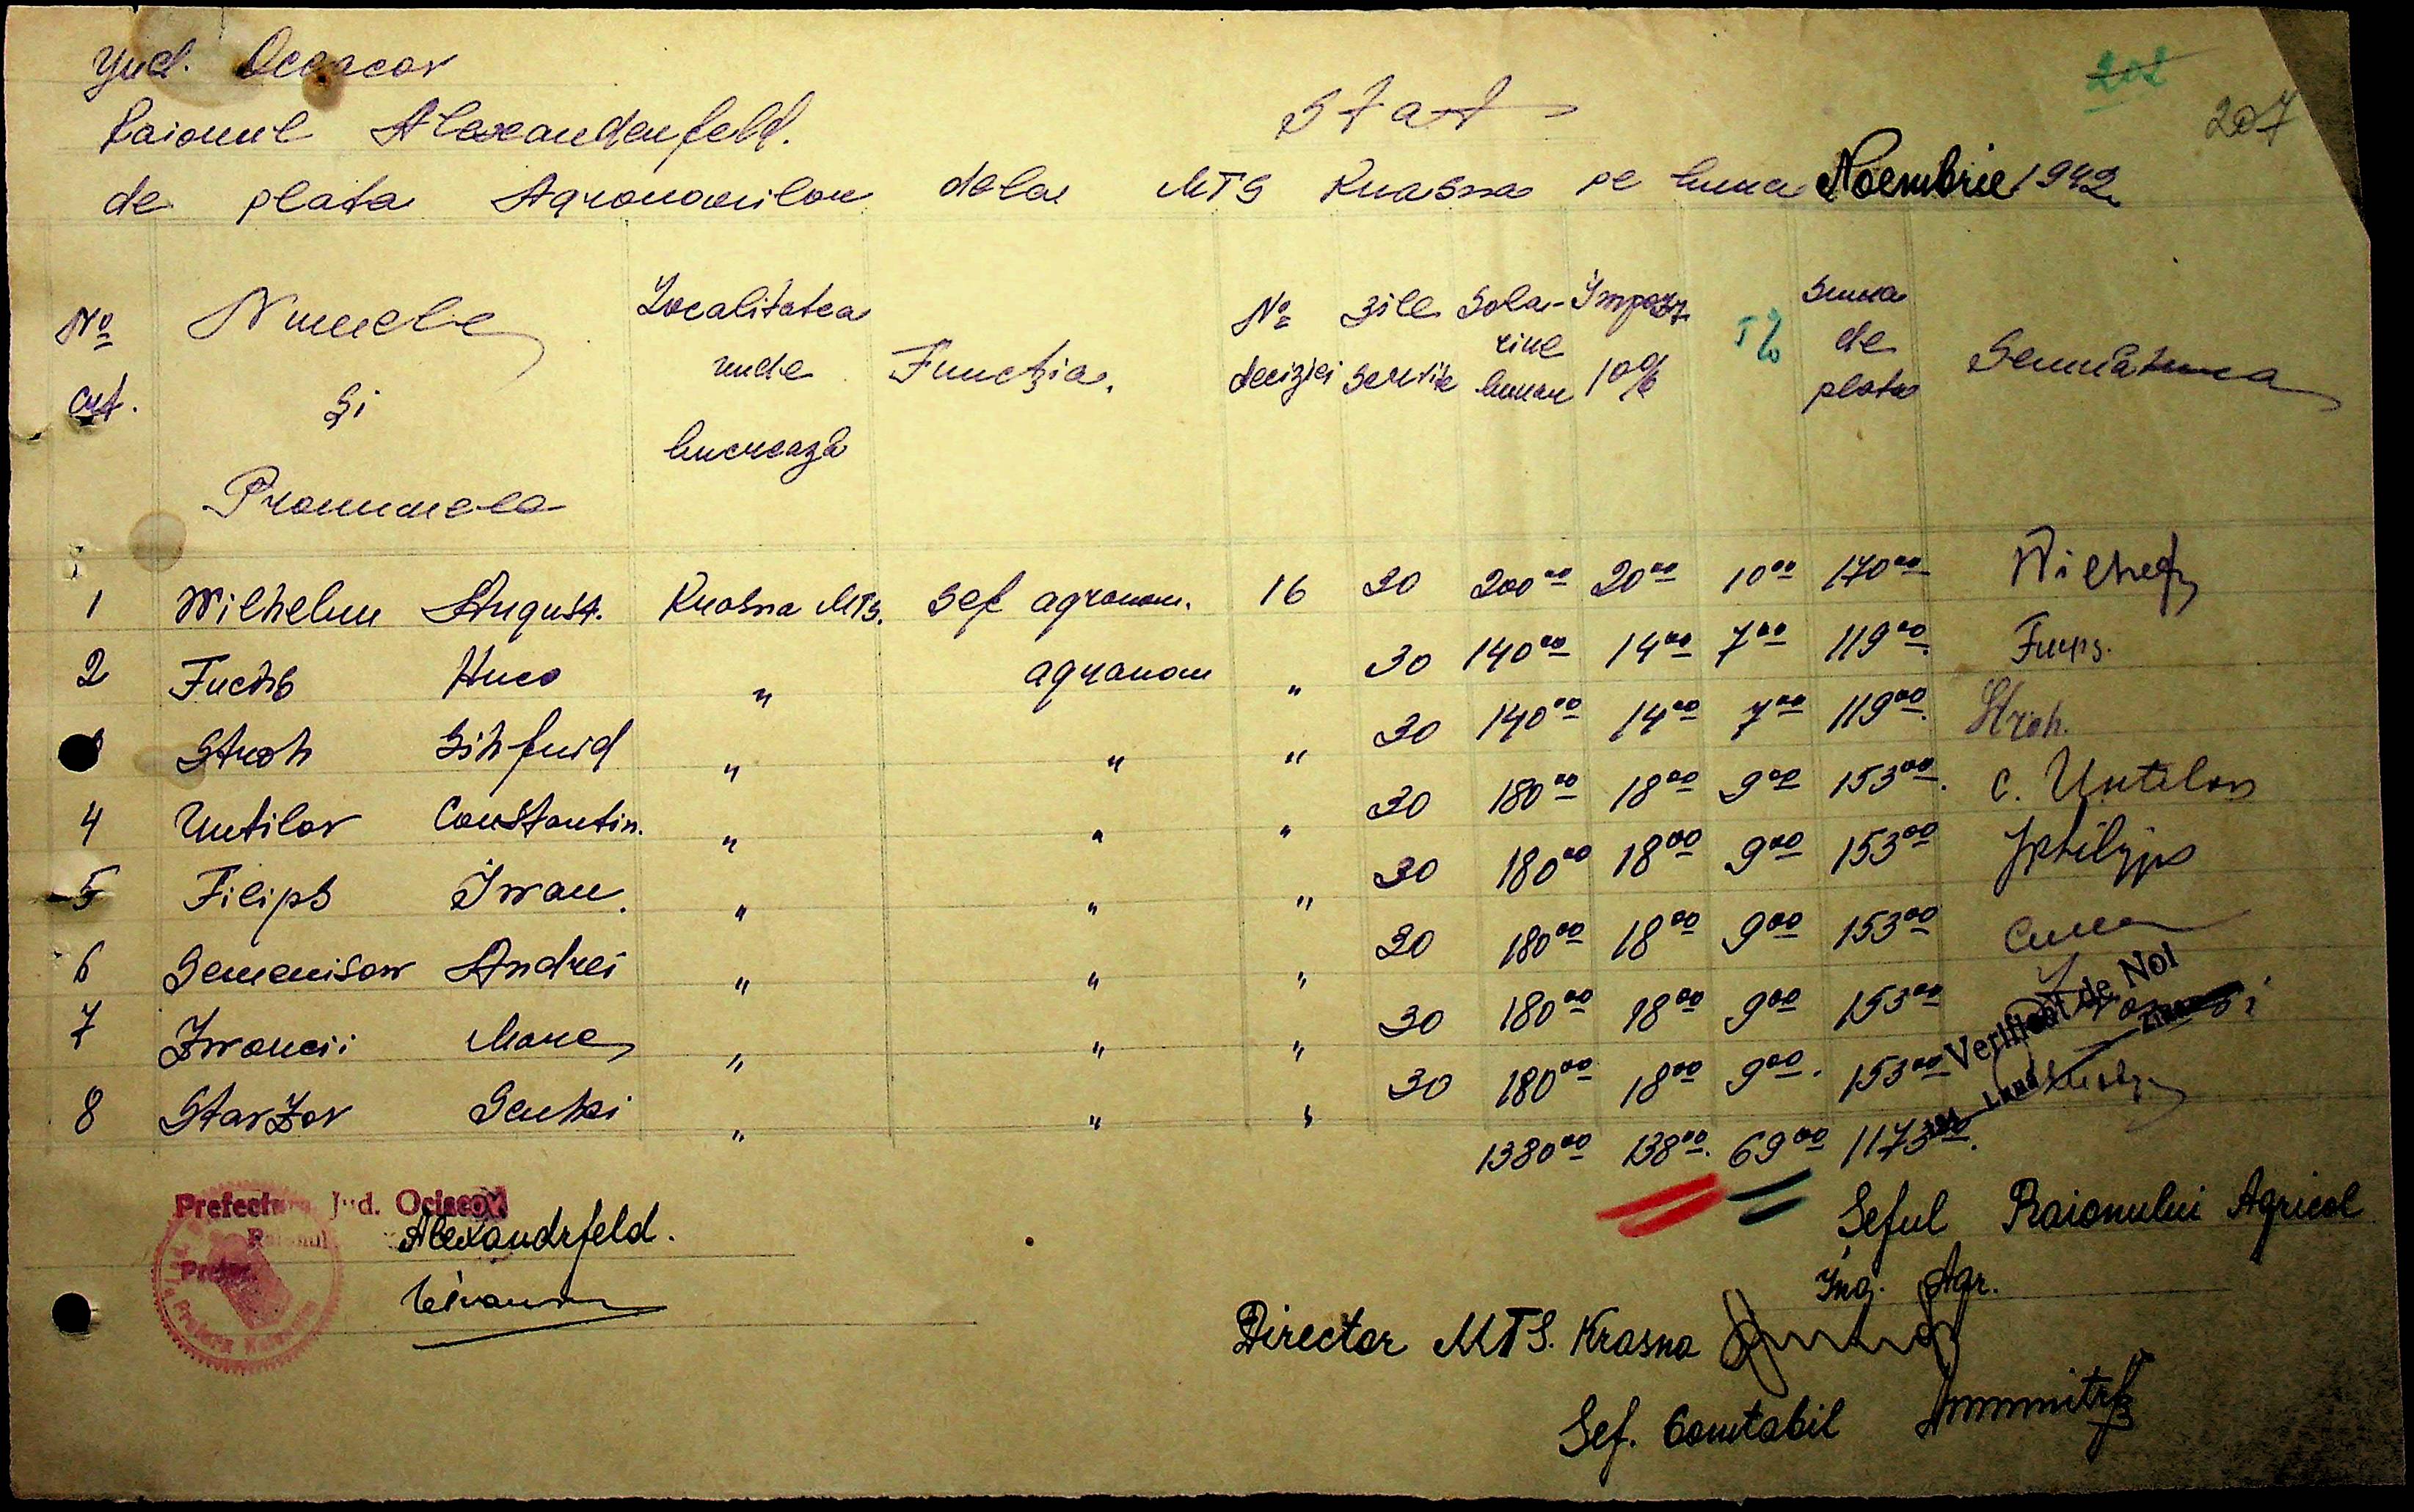 Jud. Oceacov
202
207
Raionul Alexandenfeld.
Stat
de plata Agronomilor dela MTS Krasna pe luna Noembrie 1942
No crt. Numele și Pronumele Localitatea unde lucrează Funcția. No deciziei zile servite Sola-riul lunar Impozt 10% 5% Suma de plata Semnătura
1 Wilhelm August. Krasna MTS. Sef agronom. 16 30 200 00 20 00 10 00 170 00 Wilhelm
2 Fuchs Huco " agronom " 30 140 00 14 00 7 00 119 00 Fuchs.
Stroh Sihfrid " " " 30 140 00 14 00 7 00 119 00 Stroh.
4 Untilov Constantin. " " " 30 180 00 18 00 9 00 153 00. C. Untilov
5 Filips Iwan. " " " 30 180 00 18 00 9 00 153 00 Philipps
6 Semenisow Andrei " " " 30 180 00 18 00 9 00 153 00
7 Iwancii Marc " " " 30 180 00 18 00 9 00 153 00
8 Starzov Serhei " " " 30 180 00 18 00 9 00. 153 00
Verificat de Noi
1380 00 138 00. 69 00 1173 00.
Prefectura Jud. Ociacov
Raionul Alexandrfeld.
Pretor
Seful Raionului Agricol
Ing. Agr.
Director MTS. Krasna
Sef. Contabil